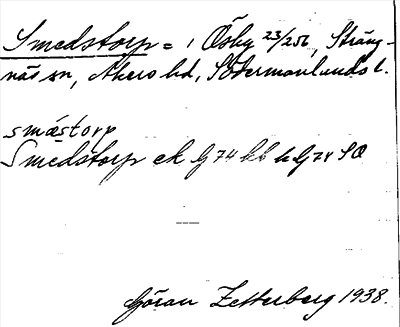 Smedstorp = 1 Ösby 23/256, Sträng-
näs sn, Åkers hd, Södermanlands l.
smæstorp
Smedstorp ek G 74 kb h G 74 SO
Göran Zetterberg 1938.